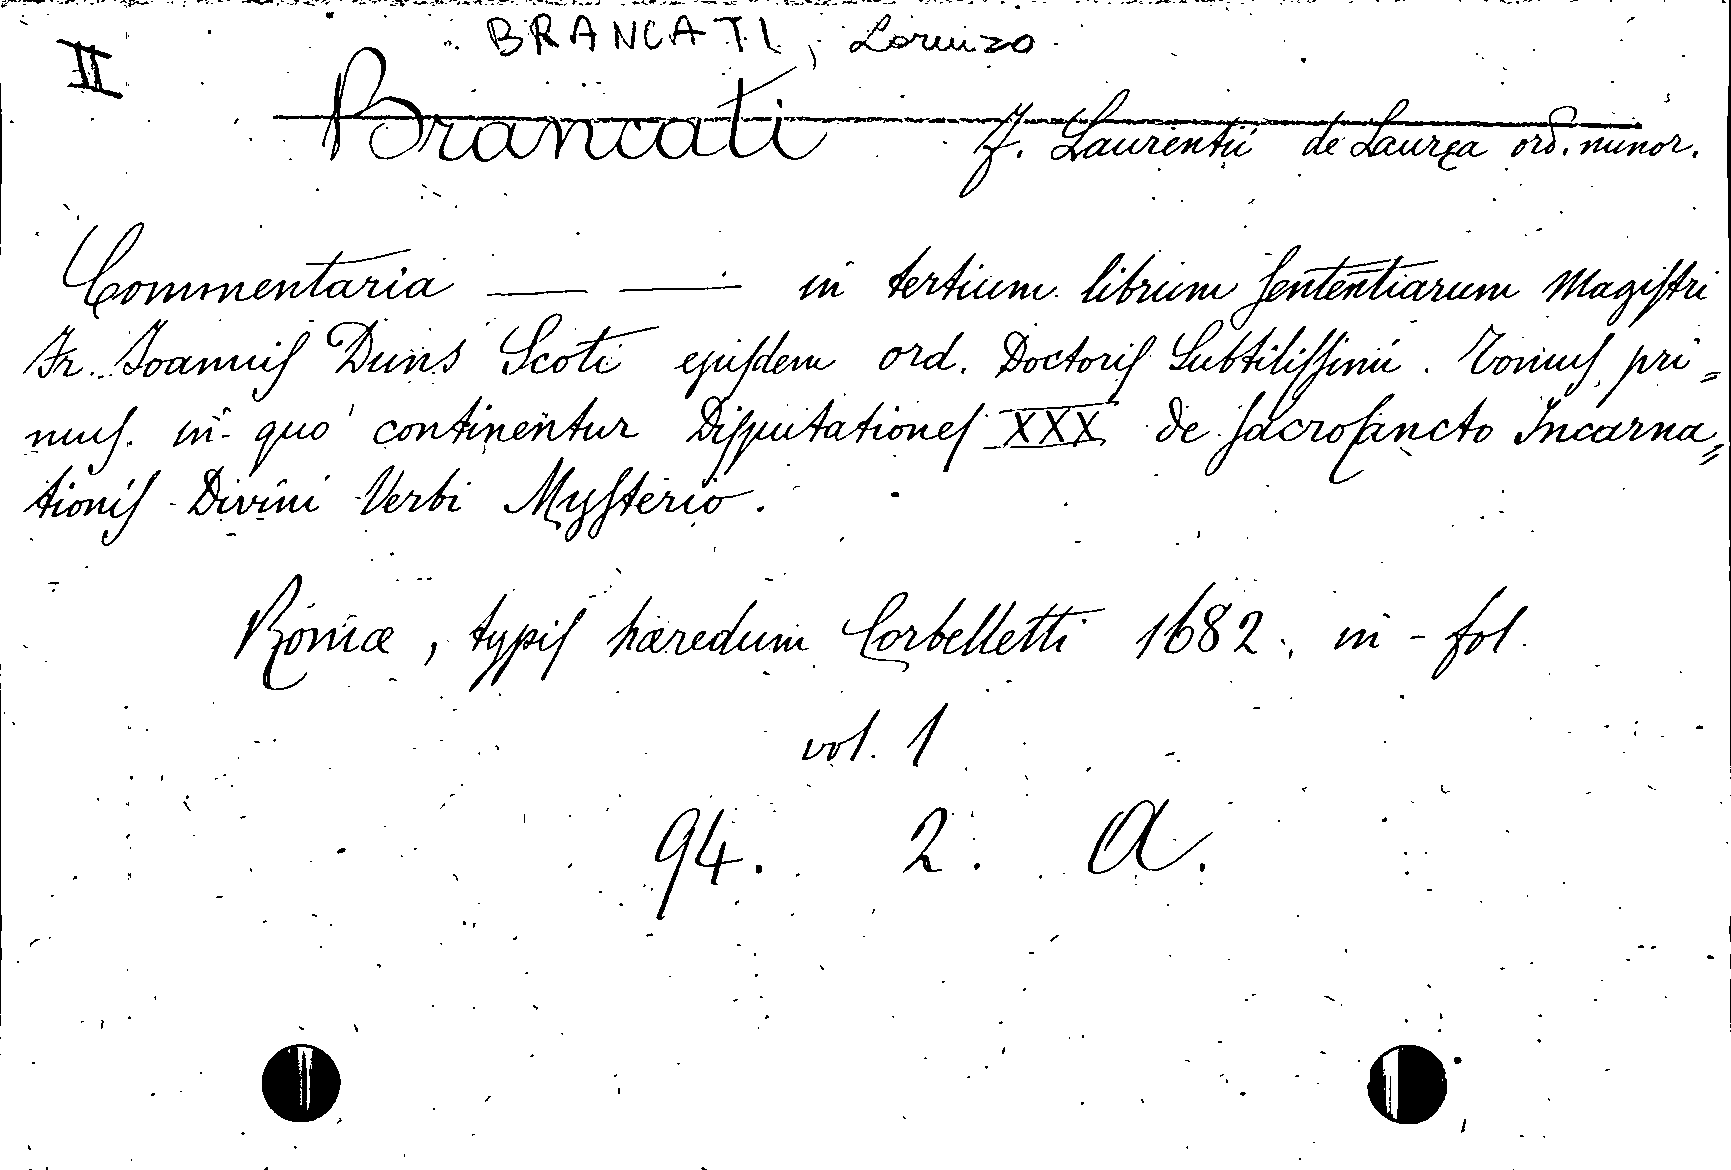 II
BRANCATI, Lorenzo
Brancati F. Laurentii de Laurea ord. minor.
Commentaria — — in tertium librum sententiarum Magistri
Fr. Joannis Duns Scoti ejusdem ord. Doctoris Subtilissimi. Tomus pri=
mus. in quo continentur Disputationes XXX de sacrosancto Incarna=
tionis Divini Verbi Mysterio.
Romæ, typis hæredum Corbelletti 1682. in-fol.
vol. 1
94. 2. A.